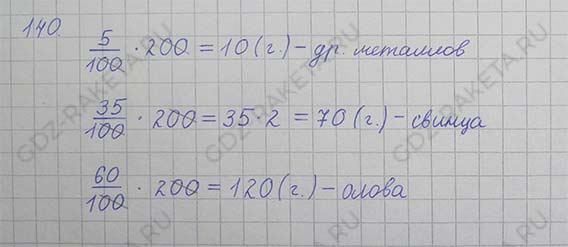 140.
5/100 · 200 = 10 (г.) – др. металлов
35/100 · 200 = 35 · 2 = 70 (г.) – свинца
60/100 · 200 = 120 (г.) – олова
GDZ-RAKETA.RU